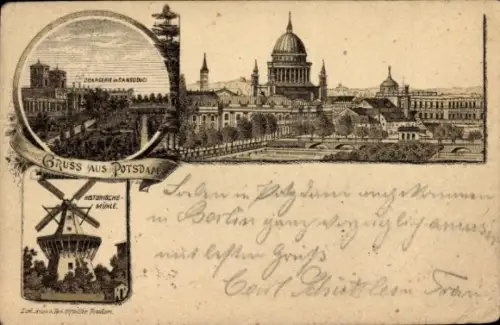 ORANGERIE in SANSSOUCI
GRUSS AUS POTSDAM
HISTORISCHE
MÜHLE.
Soeben in Potsdam angekommen
in Berlin ganz vorzüglich
mit besten Gruß
Carl